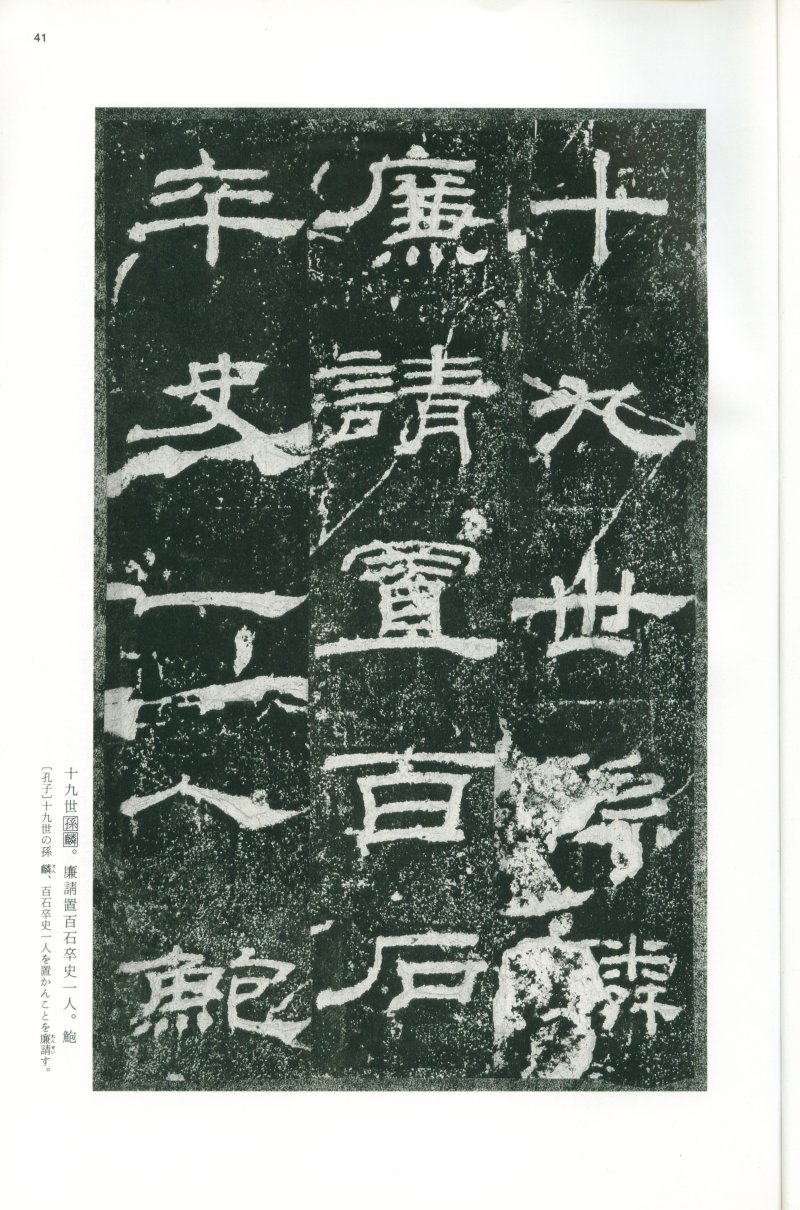 41
十九世孫麟
廉請置百石
卒史一人鮑
十九世孫麟。廉請置百石卒史一人。鮑
〔孔子〕十九世の孫 麟、百石卒史一人を置かんことを廉請す。
りん
れんせい